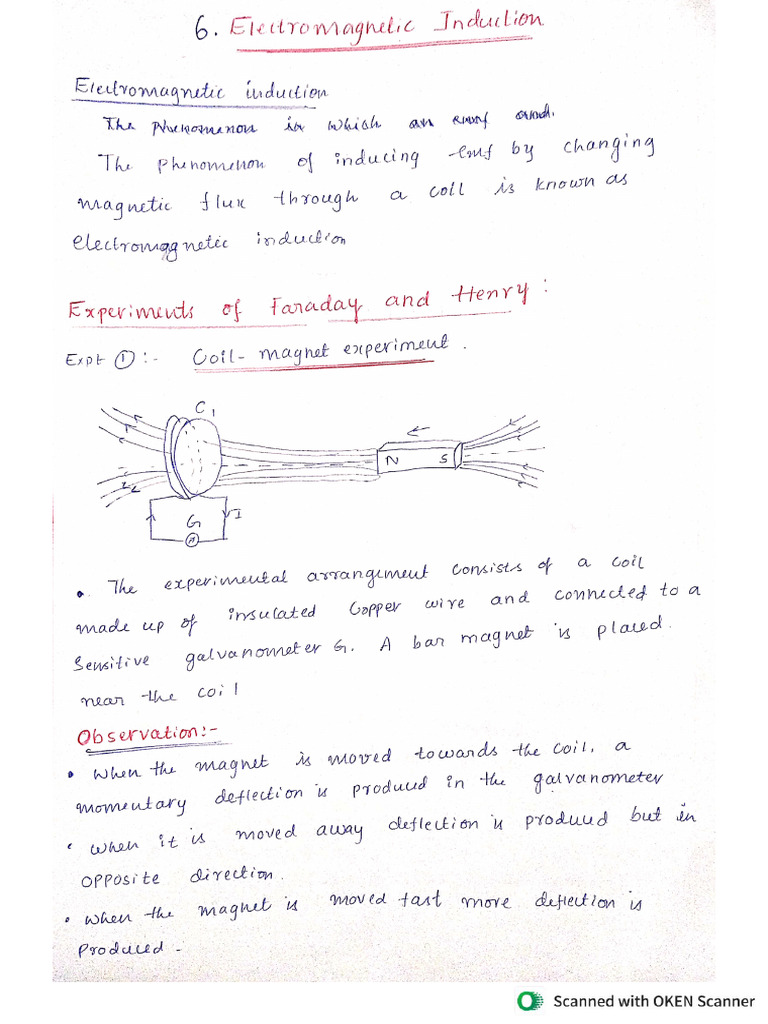 6. Electromagnetic Induction
Electromagnetic induction
The phenomenon in which an emf and.
The phenomenon of inducing emf by changing
magnetic flux through a coil is known as
electromagnetic induction
Experiments of Faraday and Henry:
Expt ① :- Coil-magnet experiment.
C1
N S
G I
• The experimental arrangement consists of a coil
made up of insulated Copper wire and connected to a
Sensitive galvanometer G. A bar magnet is placed.
near the coil
Observation:-
• When the magnet is moved towards the coil, a
momentary deflection is produced in the galvanometer
• when it is moved away deflection is produced but in
opposite direction.
• when the magnet is moved fast more deflection is
produced.
Scanned with OKEN Scanner